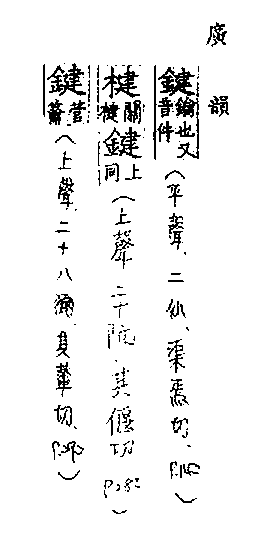 廣韻
鍵鑰也又音件(平聲、二仙、渠焉切、P.140)
楗關楗鍵上同(上聲、二十阮、其偃切 P.282)
鍵管籥(上聲、二十八獮、其輦切、P.292)